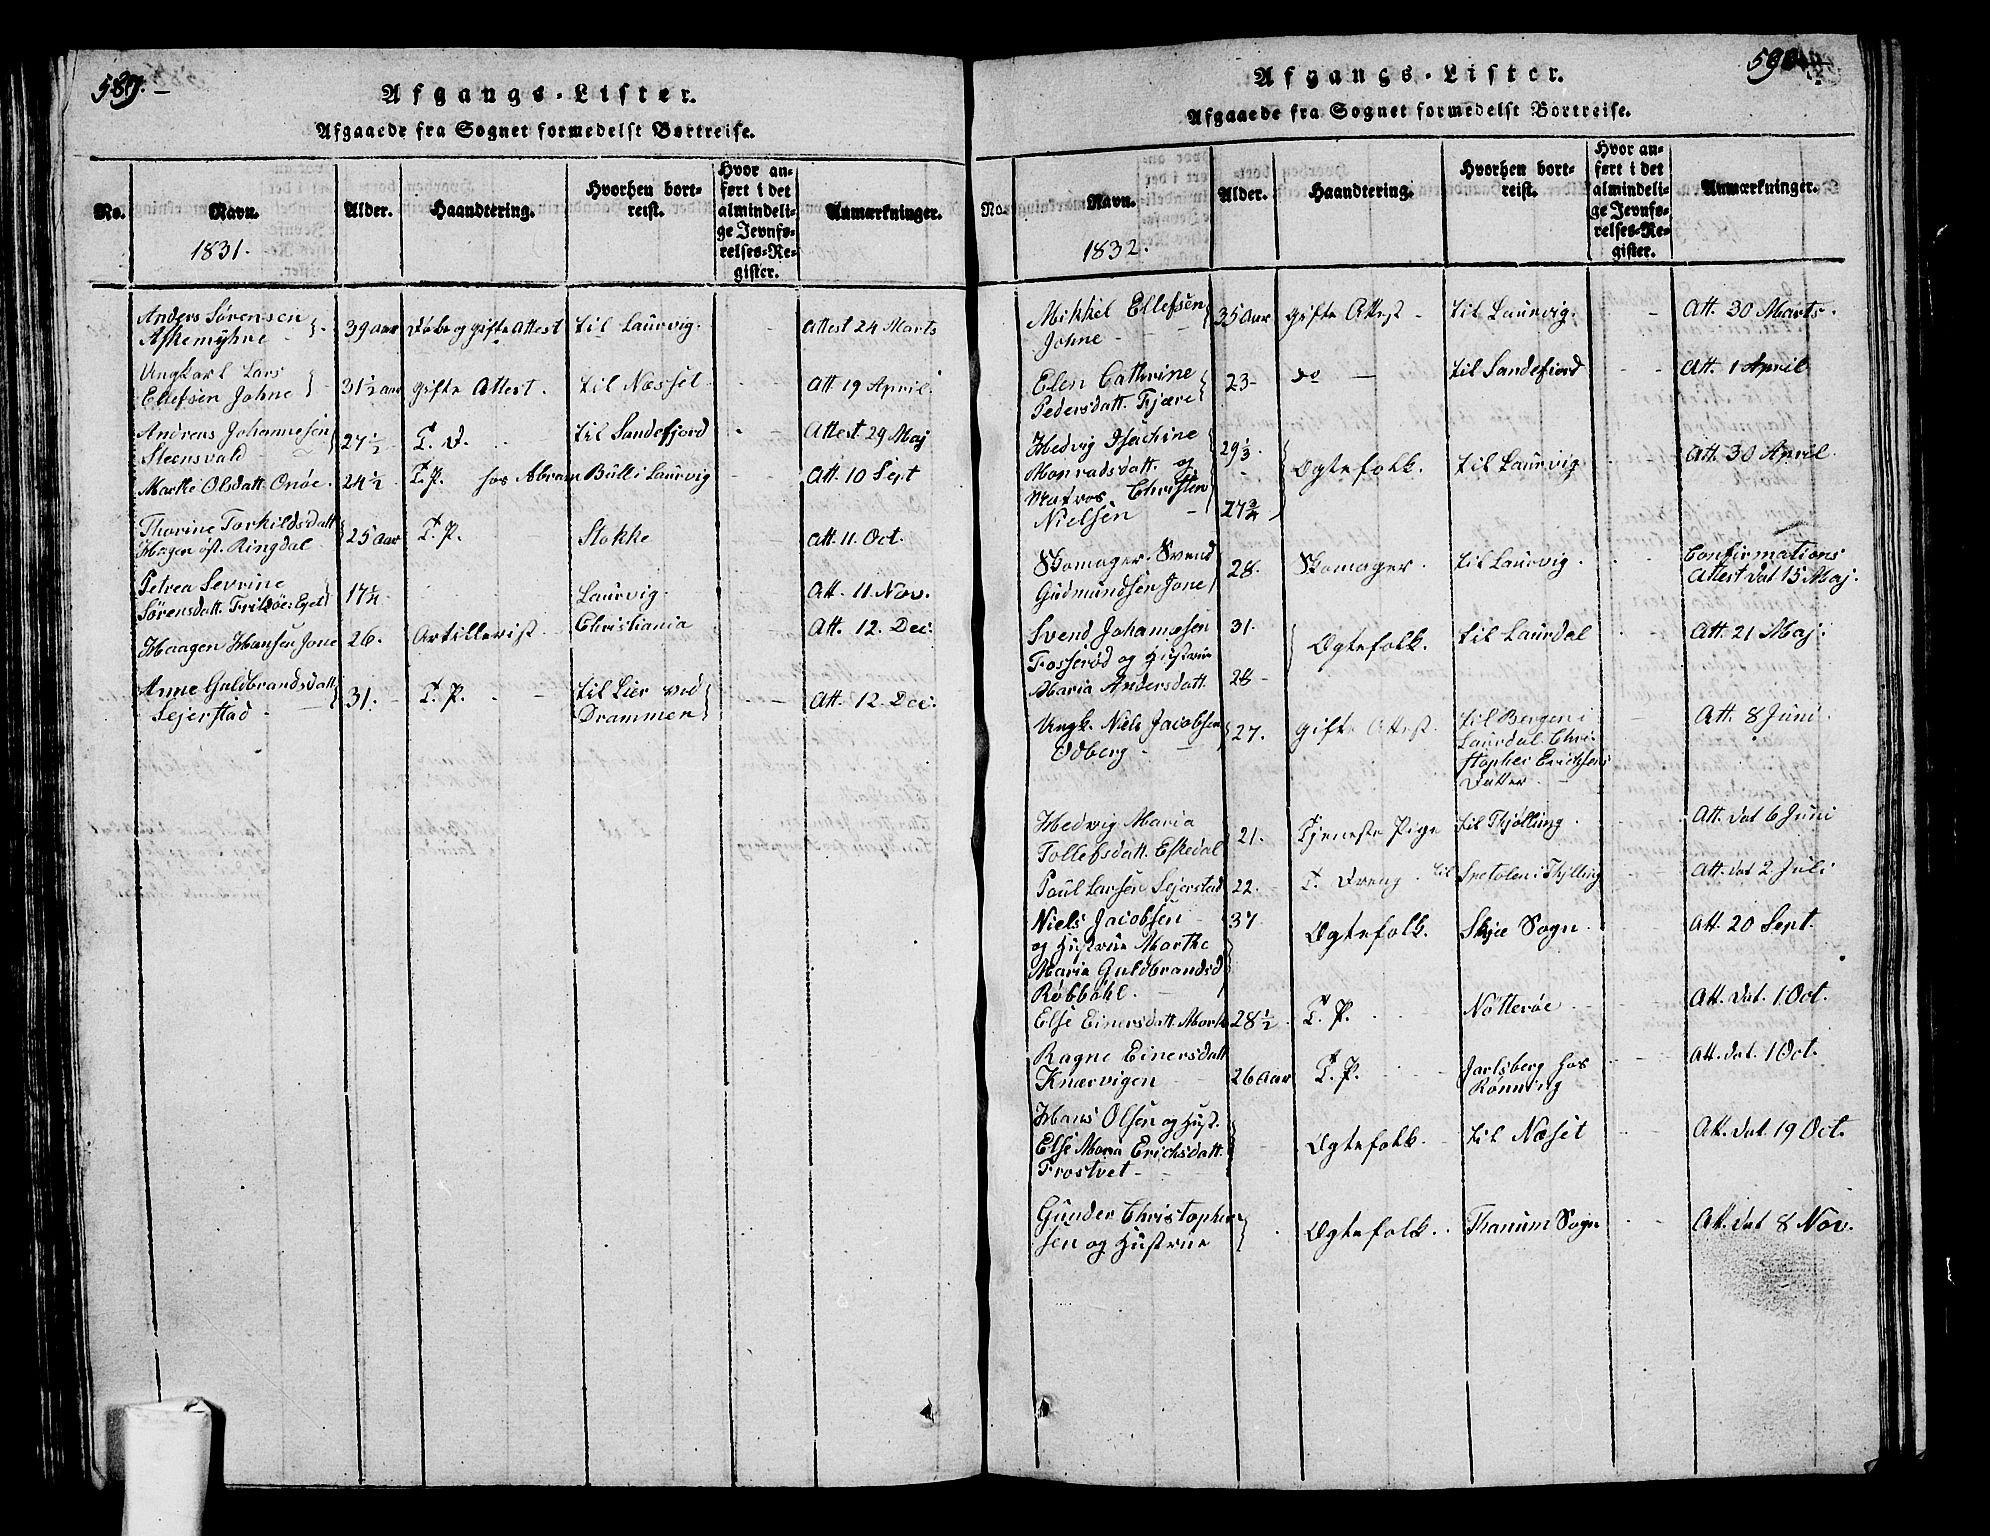 589.
Afgangs-Lister.
Afgaaede fra Sognet formedelst Bortreise.
No.
Navn.
Alder.
Haandtering.
Hvorhen bort-
reist.
Hvor an-
ført i det
almindeli-
ge Jevnfø-
relses-Re-
gister.
Anmærkninger.
1831.
Anders Sørensen
Askemyhre 39 aar Døbe og gifte Attest til Laurvig. Attest 24 Marts
Ungkarl Lars
Ellefsen Johne 31 1/2 aar gifte Attest. til Næsset Att 19 April.
Andreas Johannesen
Steensvald 27 1/2 T. D. til Sandefjord Attest 29 Maj
Marthe Olsdatt. Onøe. 24 1/2 T.P. hos Abram Bull i Laurvig Att. 10 Sept
Thorine Torkildsdatt
Hagen øst. Ringdal 25 Aar T. P. Stokke Att. 11. Oct.
Petrea Sevrine
Sørensdatt. Fritzøe: Egeld 17 1/4 Laurvig Att. 11. Nov.
Haagen Hansen Jone 26. Artillerist Christiania Att. 12. Dec.
Anne Guldbrandsdatt
Sejerstad 31. T. P. til Lier ved
Drammen Att. 12. Dec.
590
Afgangs-Lister.
Afgaaede fra Sognet formedelst Bortreise.
No.
Navn.
Alder.
Haandtering.
Hvorhen bort-
reist.
Hvor an-
ført i det
almindeli-
ge Jevnfø-
relses-Re-
gister.
Anmærkninger.
1832.
Mikkel Ellefsen
Johne 35 Aar gifte Attest til Laurvig. Att. 30 Marts.
Elen Cathrine
Pedersdatt. Fjære 23 do til Sandefiord Att. 1 April
Hedvig Isachine
Monradsdatt. og 29 1/3
Matros. Christen
Nielsen 27 3/4 Ægtefolk. til Laurvig Att. 30 April.
Skomager Svend
Gudmundsen Jone 28. Skomager. til Laurvig. Confirmations
Attest dat 15 Maj.
Svend Johannesen 31.
Fosserød og Hustrue
Maria Andersdatt. 28 Ægtefolk. til Laurdal Att. 21 Maj.
Ungk. Niels Jacobsen
Odberg 27. gifte Attest. til Bergen i
Laurdal. Chri-
stopher Erichsens
Datter Att. 8 Juni.
Hedvig Maria
Tollefsdatt. Eskedal 21. Tjeneste Pige til Thjølling. Att. dat 6 Juni
Poul Larsen Sejerstad 22. T. Dreng. til i Thjølling Att. dat 2. Juli
Niels Jacobsen 37
og Hustrue Marthe
Maria Guldbrandsd
Røbbøhl. Ægtefolk. Skjee Sogn. Att. 20 Sept.
Else Einersdatt. Mørk 28 1/2 T. P. Nøtterøe Att. dat. 1 Oct.
Ragne Einersdatt
Knærvigen 26 Aar T. P. Jarlsberg hos
Rønning Att. dat. 1 Oct.
Hans Olsen og Hust.
Else Maria Erichsdatt.
Frostvet Ægtefolk. til Næset Att. dat. 19 Oct.
Gunder Christopher-
sen og Hustrue Ægtefolk. Thanum Sogn Att. dat 8 Nov.